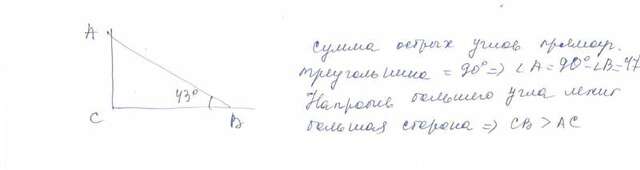 A
43°
C
B
Сумма острых углов прямоуг.
треугольника = 90° => ∠A = 90° - ∠B = 47
Напротив большего угла лежит
большая сторона => CB > AC